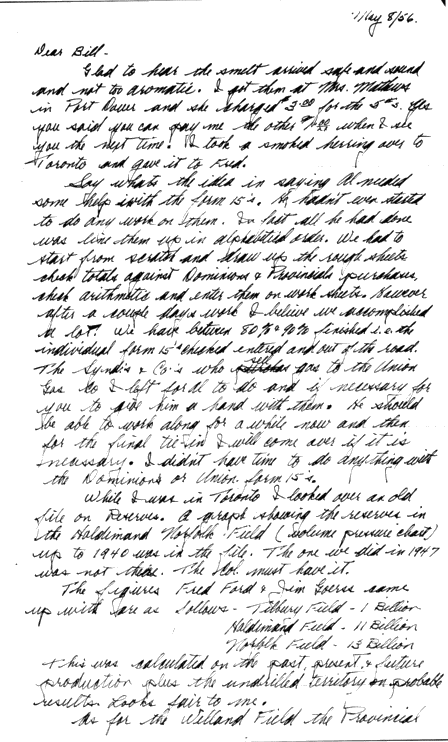 May 8/56.
Dear Bill -
Glad to hear the smelt arrived safe and sound
and not too aromatic. I got them at Mrs. Mathews
in Port Dover and she charged $3.00 for the 5#s. Yes
you said you can pay me the other when I see
you the next time. I took a smoked herring over to
Toronto and gave it to Fred.
Say whats the idea in saying Al needed
some help with the form 15's. He hadn't even started
to do any work on them. In fact all he had done
was line them up in alphabetical order. We had to
start from scratch and draw up the rough sheets
check totals against Dominions & Provincials purchases,
check arithmetic and enter them on work sheets. However
after a couple days work I believe we accomplished
a lot. We have between 80% & 90% finished i.e. the
individual form 15's checked entered and out of the road.
The Synds & Co's who sell gas to the Union
Gas Co I left for Al to do and if necessary for
you to give him a hand with them. He should
be able to work along for a while now and then
for the final tie-in I will come over if it is
necessary. I didn't have time to do anything with
the Dominions or Union form 15's.
While I was in Toronto I looked over an old
file on Reserves. A graph showing the reserves in
the Haldimand Norfolk Field (volume pressure chart)
up to 1940 was in the file. The one we did in 1947
was not there. The Col. must have it.
The figures Fred Ford & Jim came
up with are as follows - Tilbury Field - 1 Billion
Haldimand Field - 11 Billion
Norfolk Field - 13 Billion
This was calculated on the past, present, & future
production plus the undrilled territory on probable
results. Looks fair to me.
As for the Welland Field the Provincial